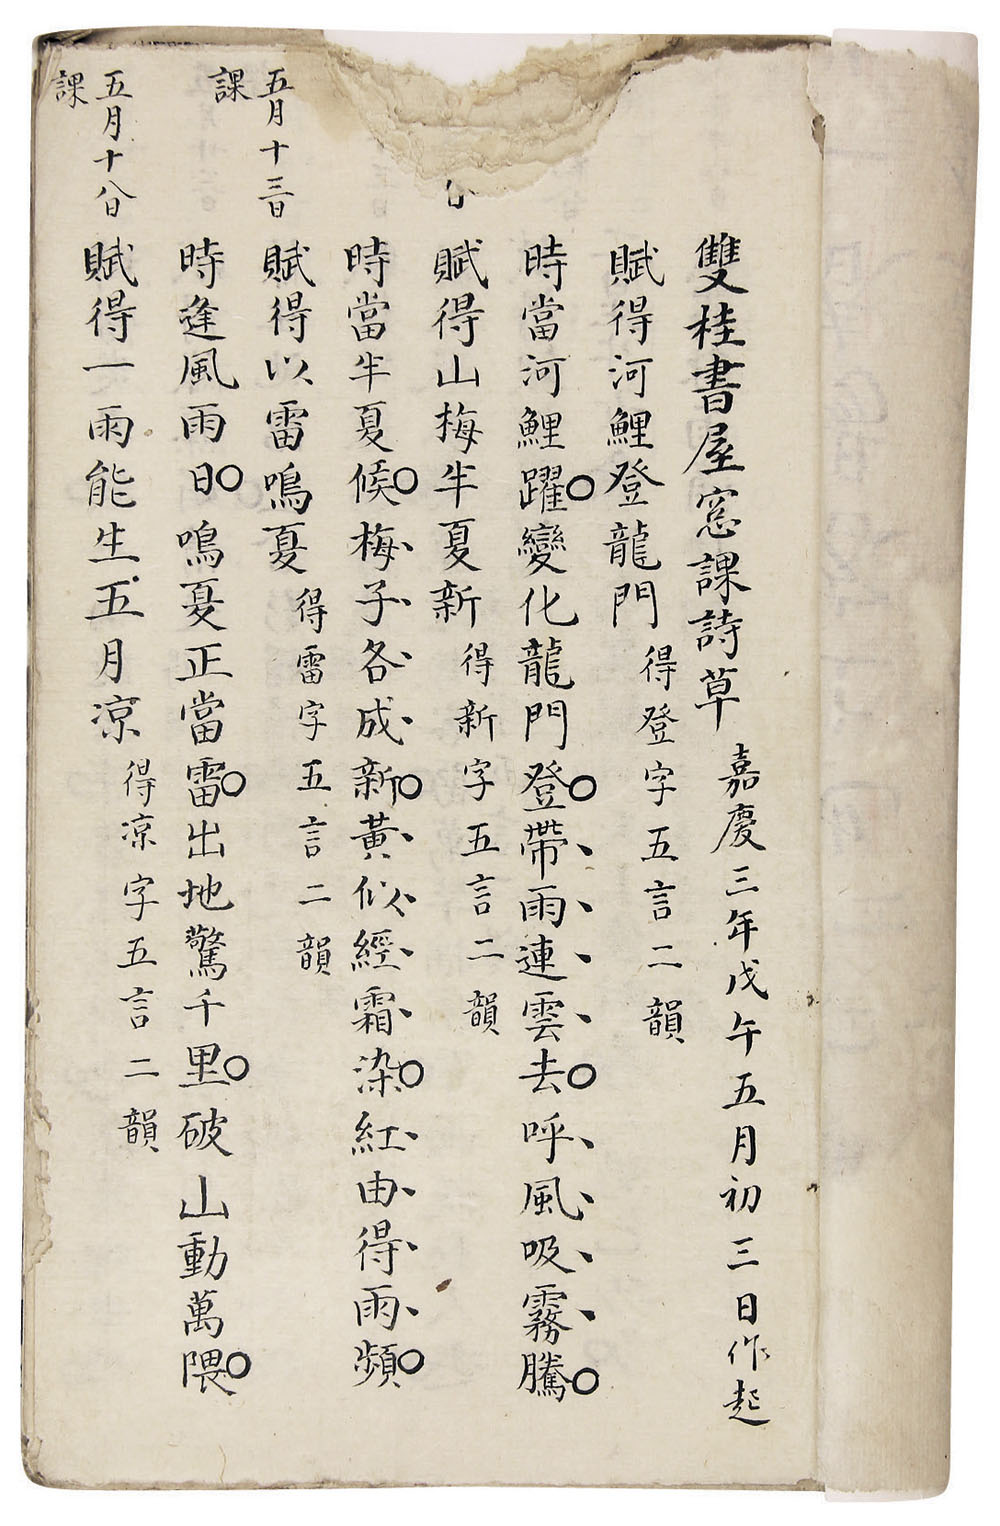 雙桂書屋窓課詩草 嘉慶三年戊午五月初三日作起
賦得河鯉登龍門 得登字五言二韻
時當河鯉躍變化龍門登帶雨連雲去呼風吸霧騰
賦得山梅半夏新 得新字五言二韻
時當半夏候梅子各成新黃似經霜染紅由得雨頻
五月十三日
課
賦得以雷鳴夏 得雷字五言二韻
時逢風雨日鳴夏正當雷出地驚千里破山動萬隈
五月十八日
課
賦得一雨能生五月凉 得凉字五言二韻